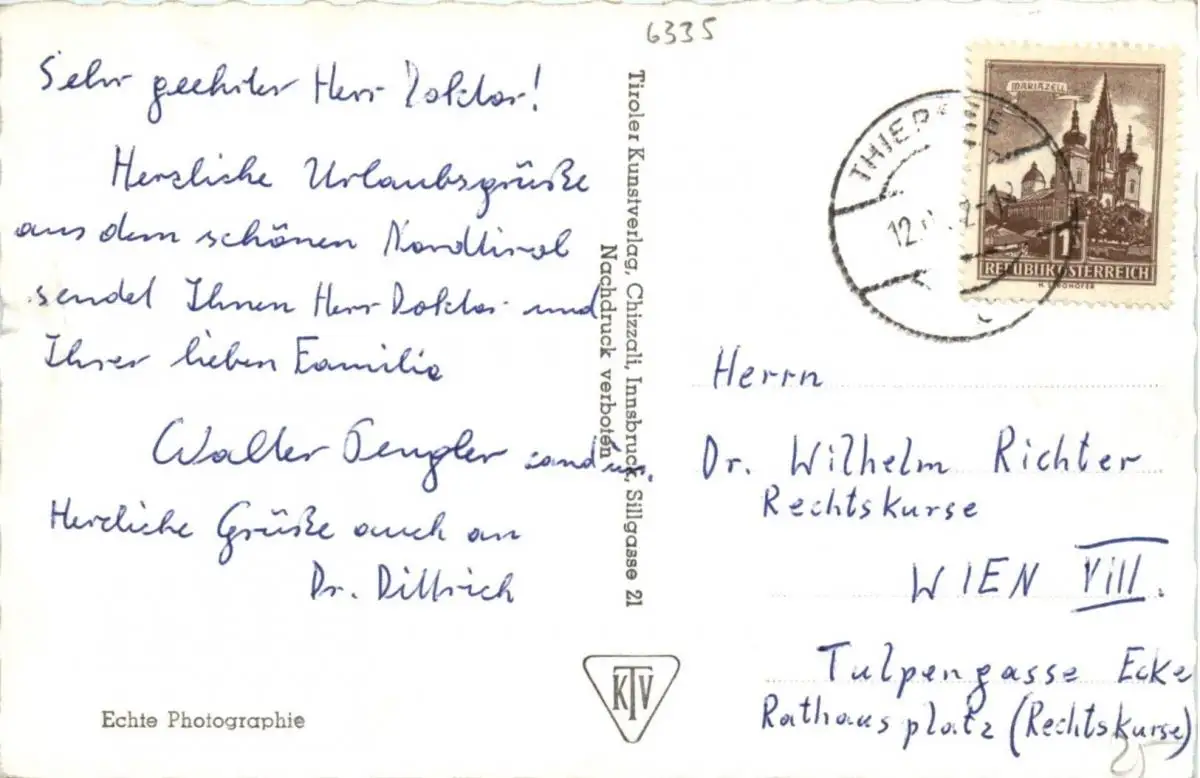 6335
Sehr geehrter Herr Doktor!
Herzliche Urlaubsgrüße
aus dem schönen Nordtirol
sendet Ihnen Herr Doktor und
Ihrer lieben Familie
Walter Fengler cand. iur.
Herzliche Grüße auch an
Dr. Dittrich
Echte Photographie
Tiroler Kunstverlag, Chizzali, Innsbruck, Sillgasse 21
Nachdruck verboten
KTV
THIER
12.
MARIAZELL
1
REPUBLIK ÖSTERREICH
Herrn
Dr. Wilhelm Richter
Rechtskurse
WIEN VIII.
Tulpengasse Ecke
Rathausplatz (Rechtskurse)
25